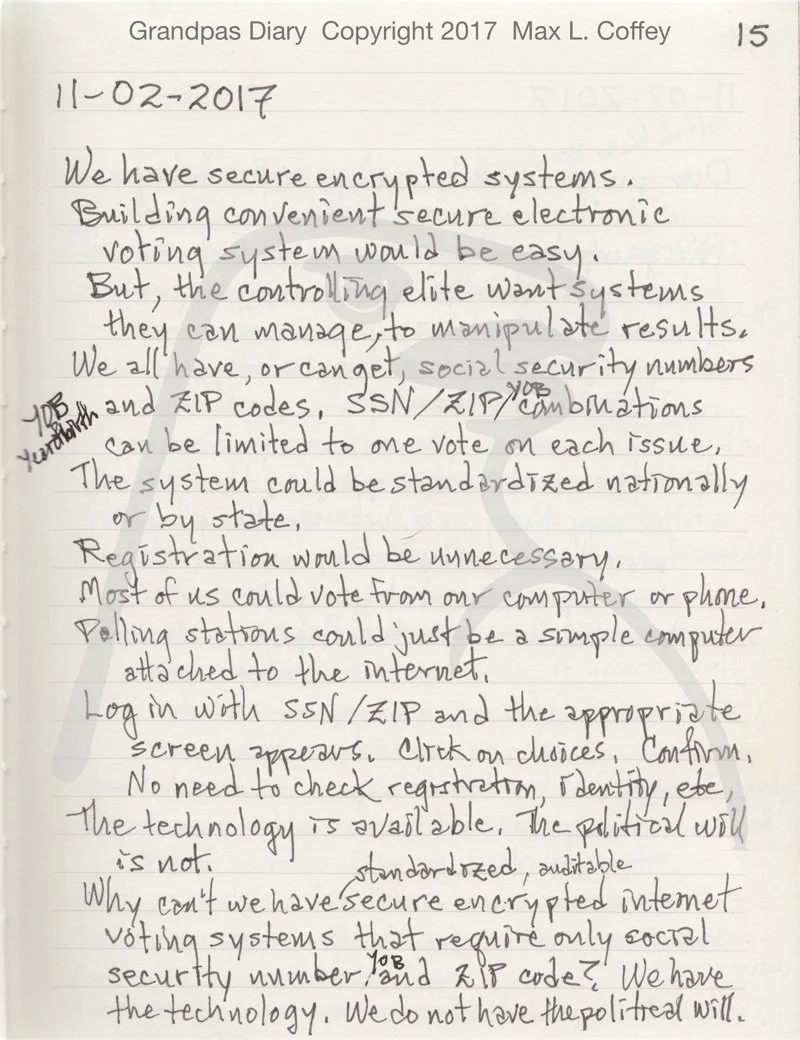 Grandpas Diary Copyright 2017 Max L. Coffey
15
11-02-2017
We have secure encrypted systems.
Building convenient secure electronic
voting system would be easy.
But, the controlling elite want systems
they can manage, to manipulate results.
We all have, or can get, social security numbers
YOB
and ZIP codes. SSN/ZIP/combinations
YOB
Year of birth
can be limited to one vote on each issue.
The system could be standardized nationally
or by state.
Registration would be unnecessary.
Most of us could vote from our computer or phone.
Polling stations could just be a simple computer
attached to the internet.
Log in with SSN/ZIP and the appropriate
screen appears. Click on choices. Confirm.
No need to check registration, identity, etc.
The technology is available. The political will
is not.
standardized, auditable
Why can't we have secure encrypted internet
voting systems that require only social
YOB
security number, and ZIP code? We have
the technology. We do not have the political will.